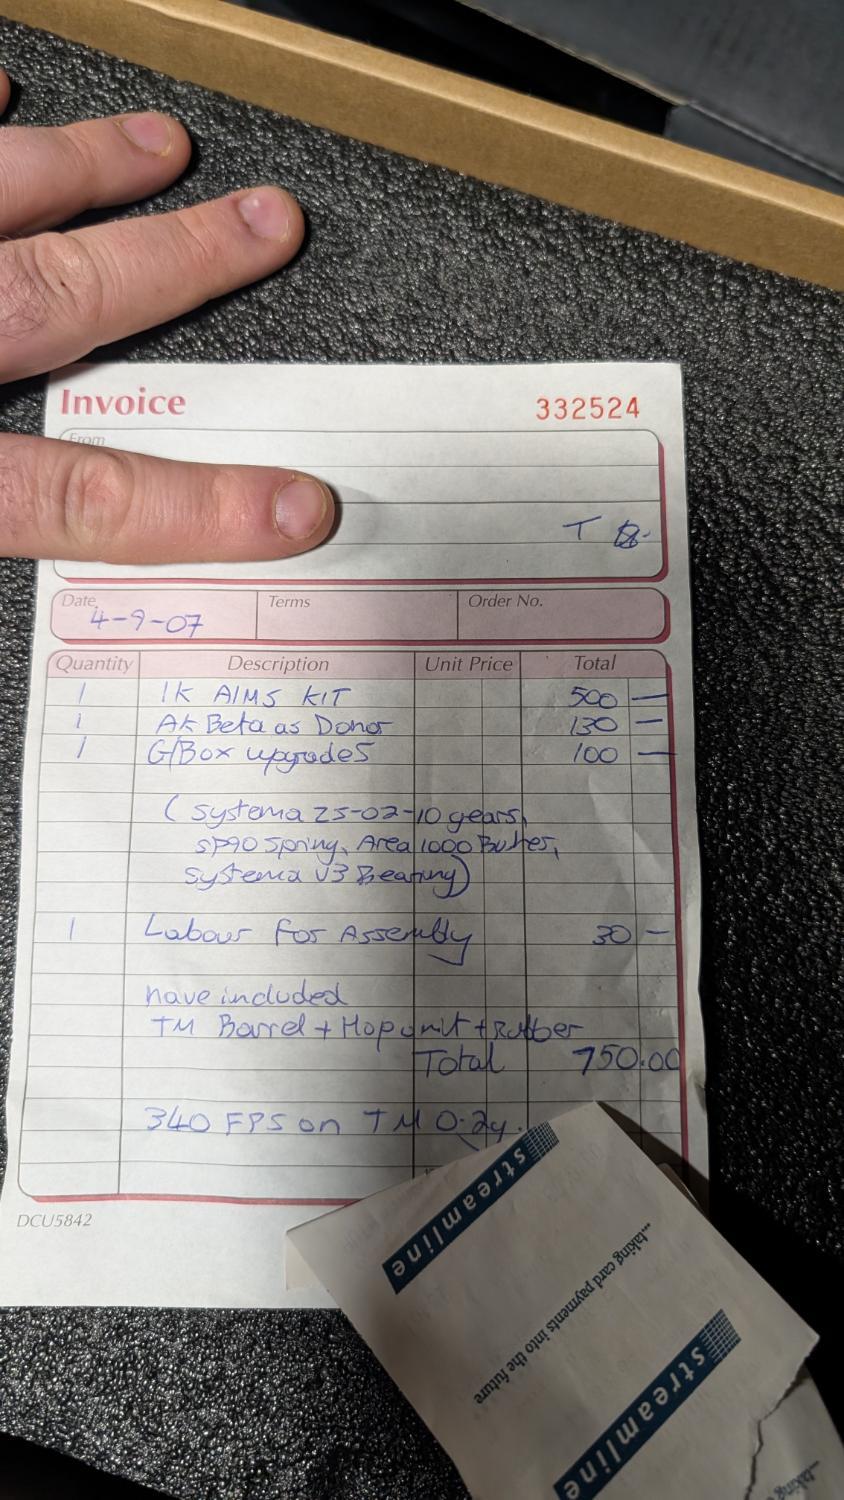 Invoice 332524
From
T
Date Terms Order No.
4-9-07
Quantity Description Unit Price Total
1 1K AIMS KIT 500 —
1 AK Beta as Donor 130 —
1 G/Box upgrades 100 —
( Systema 25-02-10 gears,
SP90 Spring, Area 1000 Bushes,
Systema V3 Bearing)
1 Labour for Assembly 30 —
have included
TM Barrel + Hop unit + Rubber
Total 750.00
340 FPS on TM 0.2g.
DCU5842
streamline
...taking card payments into the future
streamline
...taking